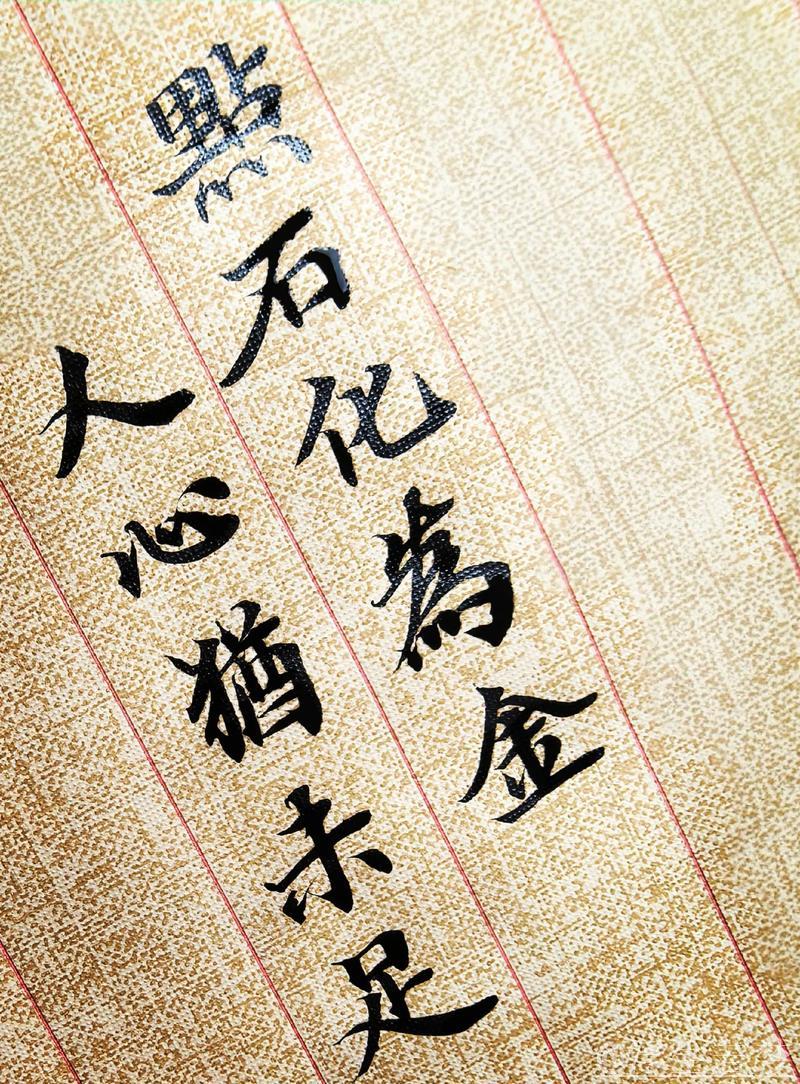 點石化為金
人心猶未足